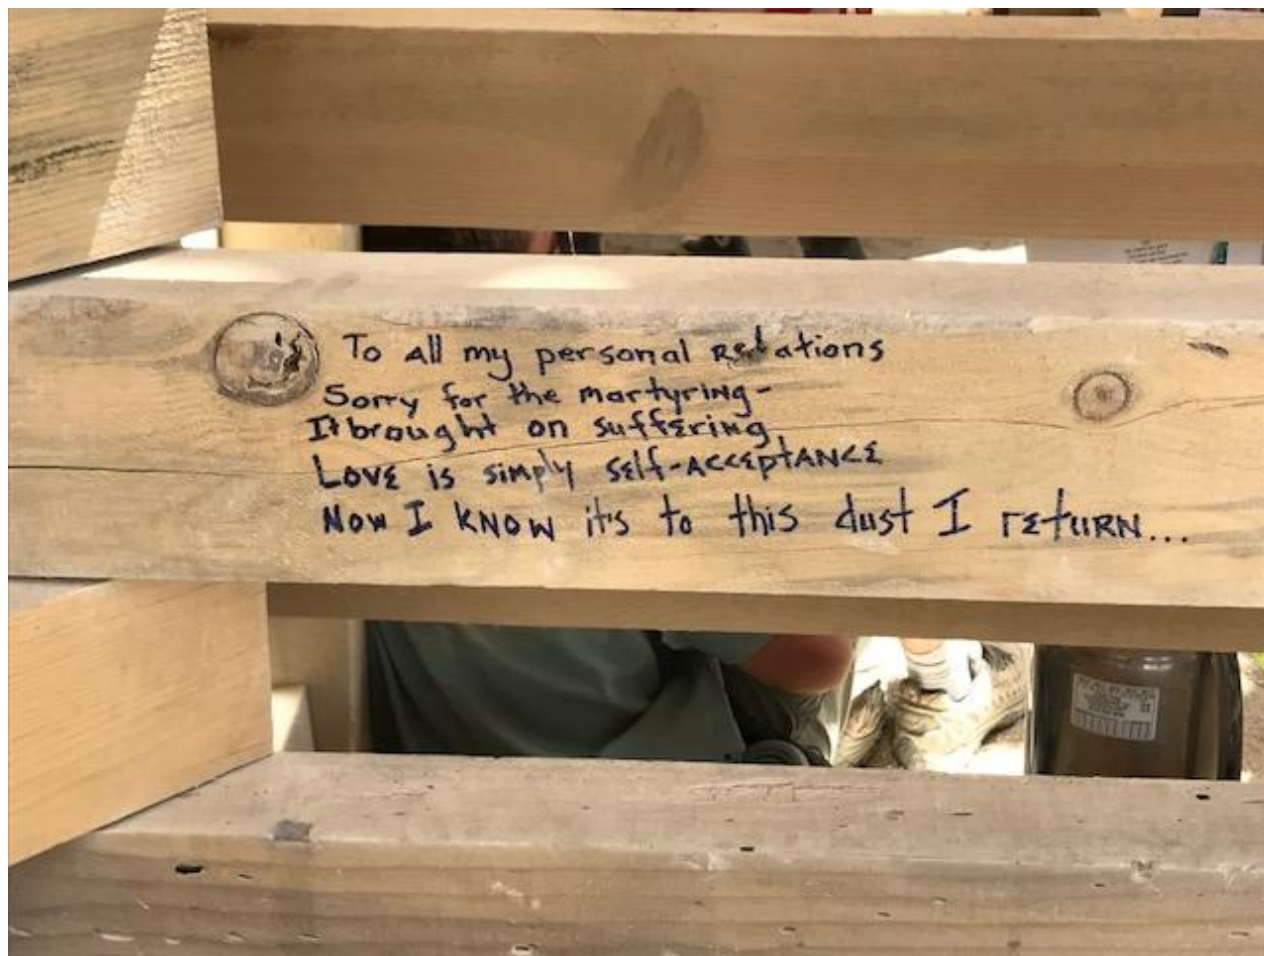 To all my personal Relations
Sorry for the martyring-
It brought on suffering
Love is simply self-acceptance
Now I know it's to this dust I return...